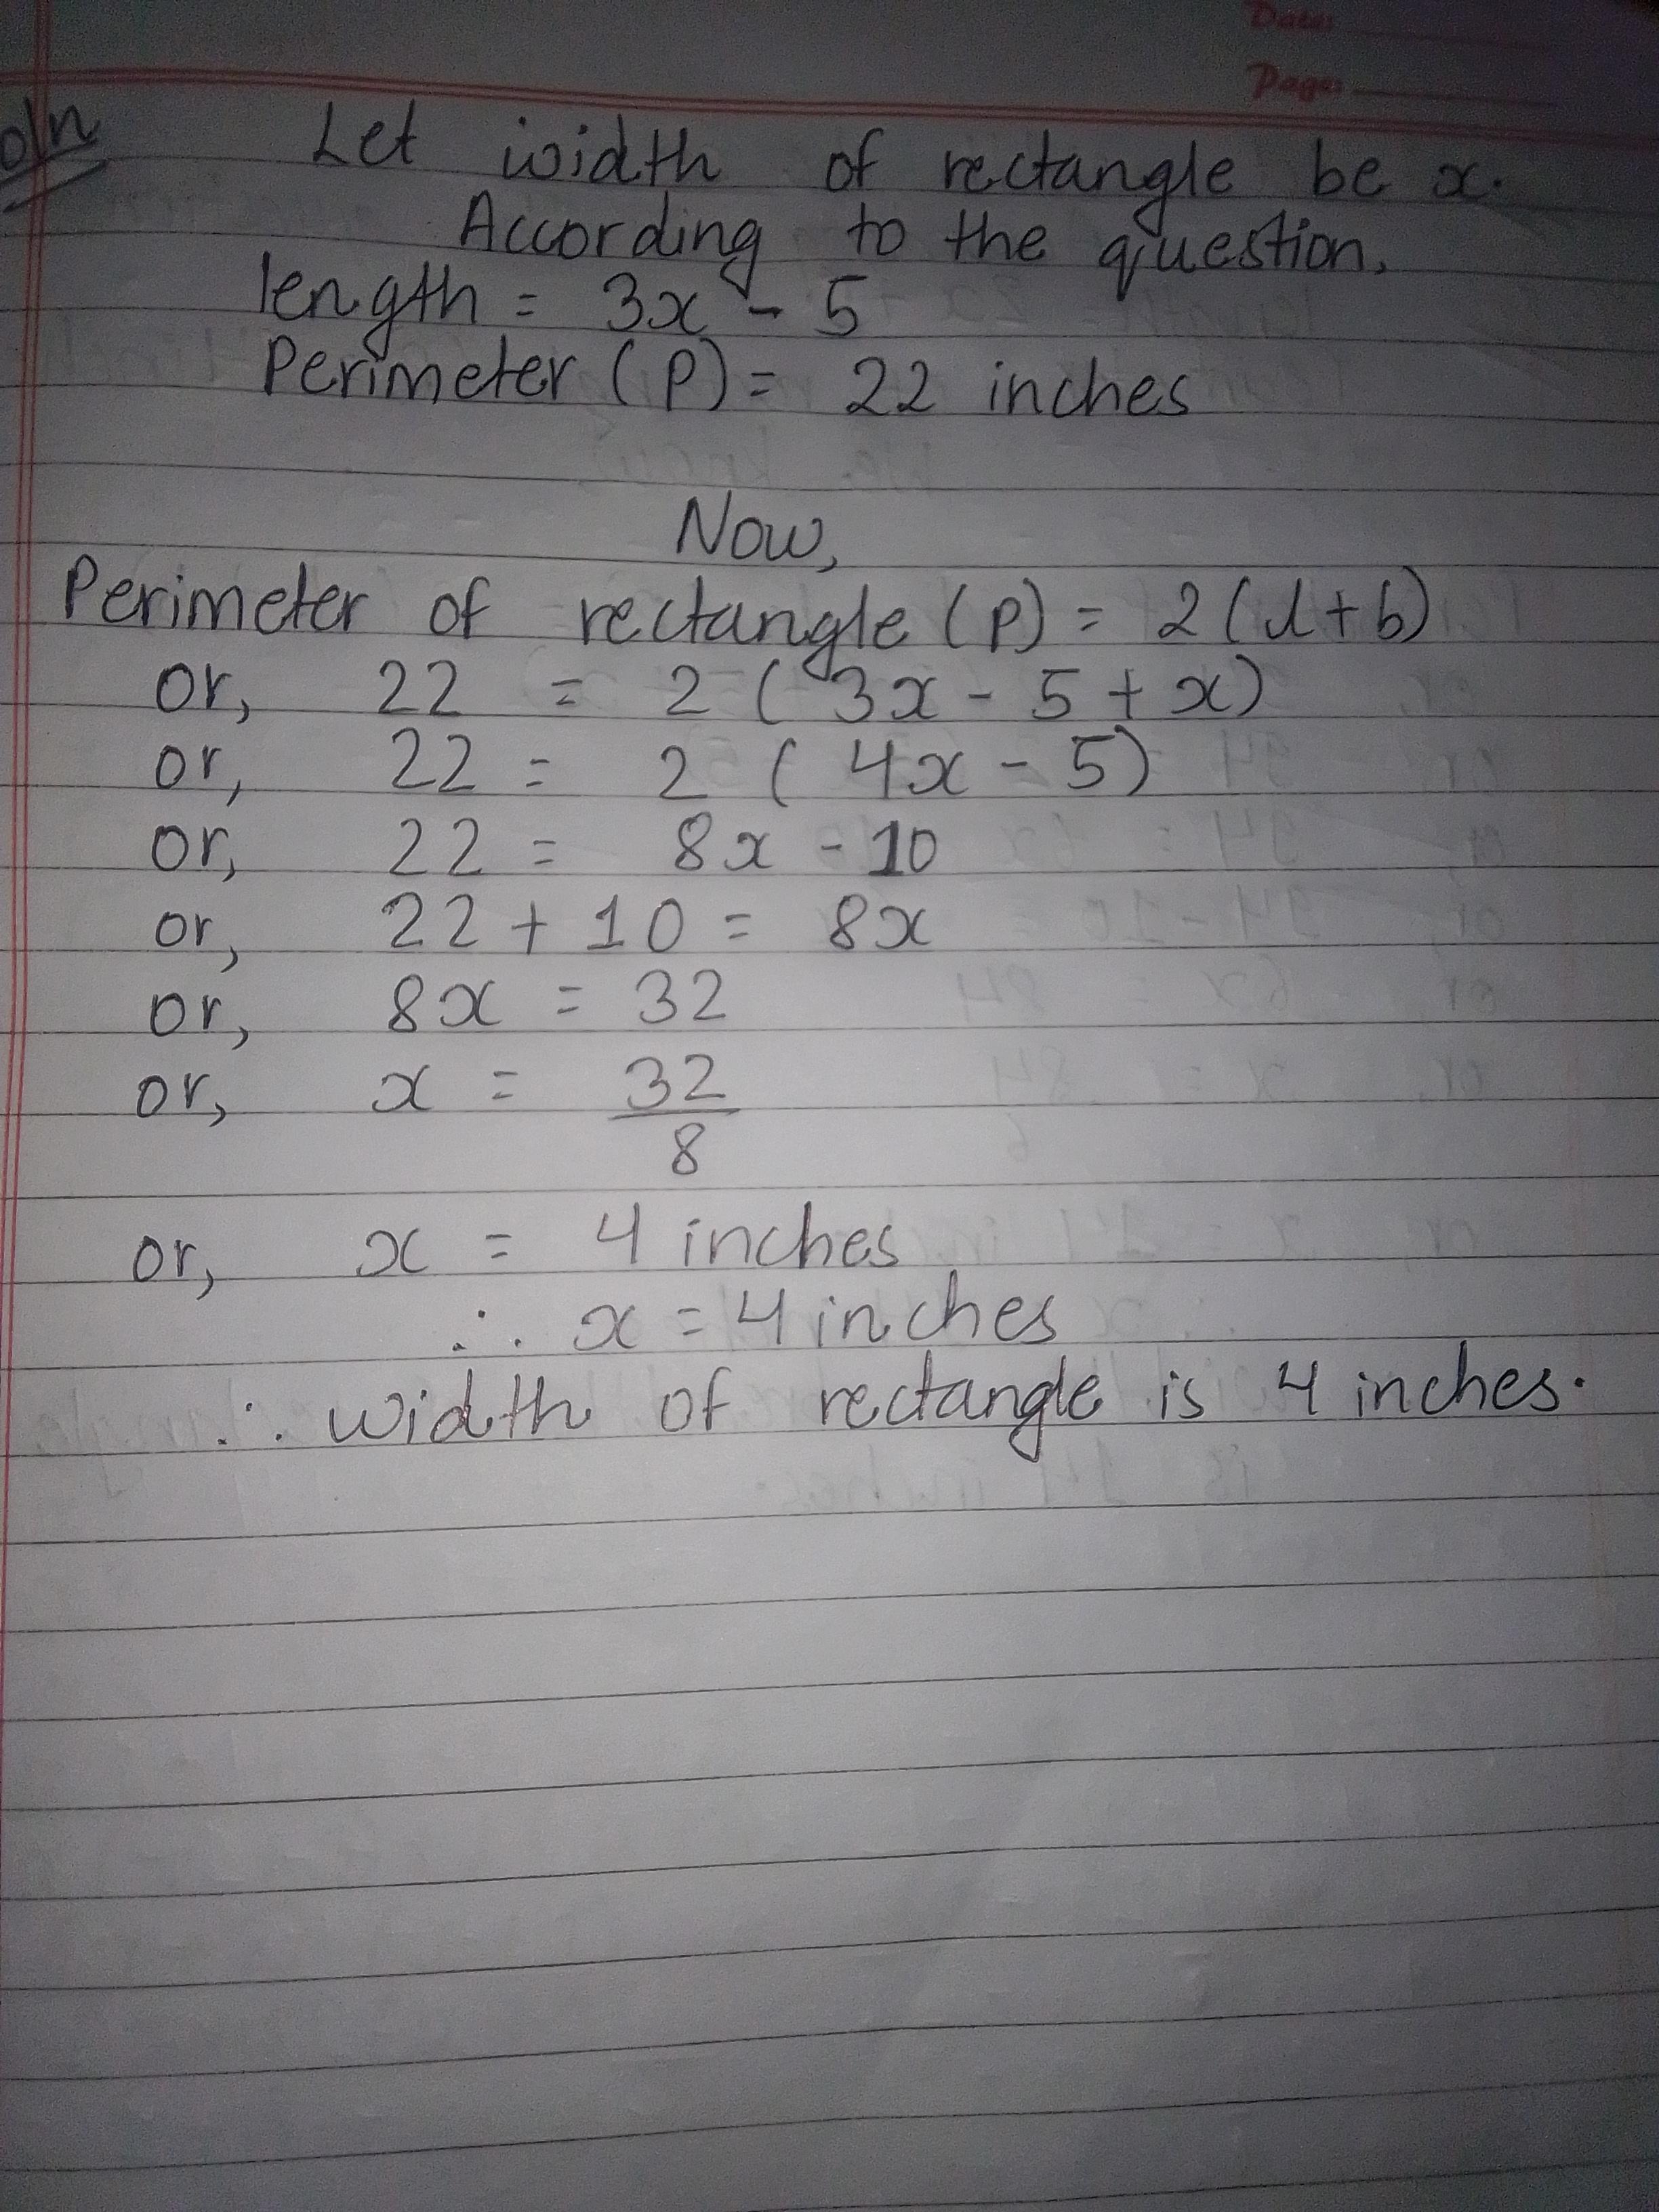 Date:
Page:
oln
Let width of rectangle be x.
According to the question,
length = 3x - 5
Perimeter (P) = 22 inches
Now,
Perimeter of rectangle (P) = 2 (l + b)
or, 22 = 2 ( 3x - 5 + x)
or, 22 = 2 ( 4x - 5)
or, 22 = 8x - 10
or, 22 + 10 = 8x
or, 8x = 32
or, x = 32
8
or, x = 4 inches
∴ x = 4 inches
∴ width of rectangle is 4 inches.